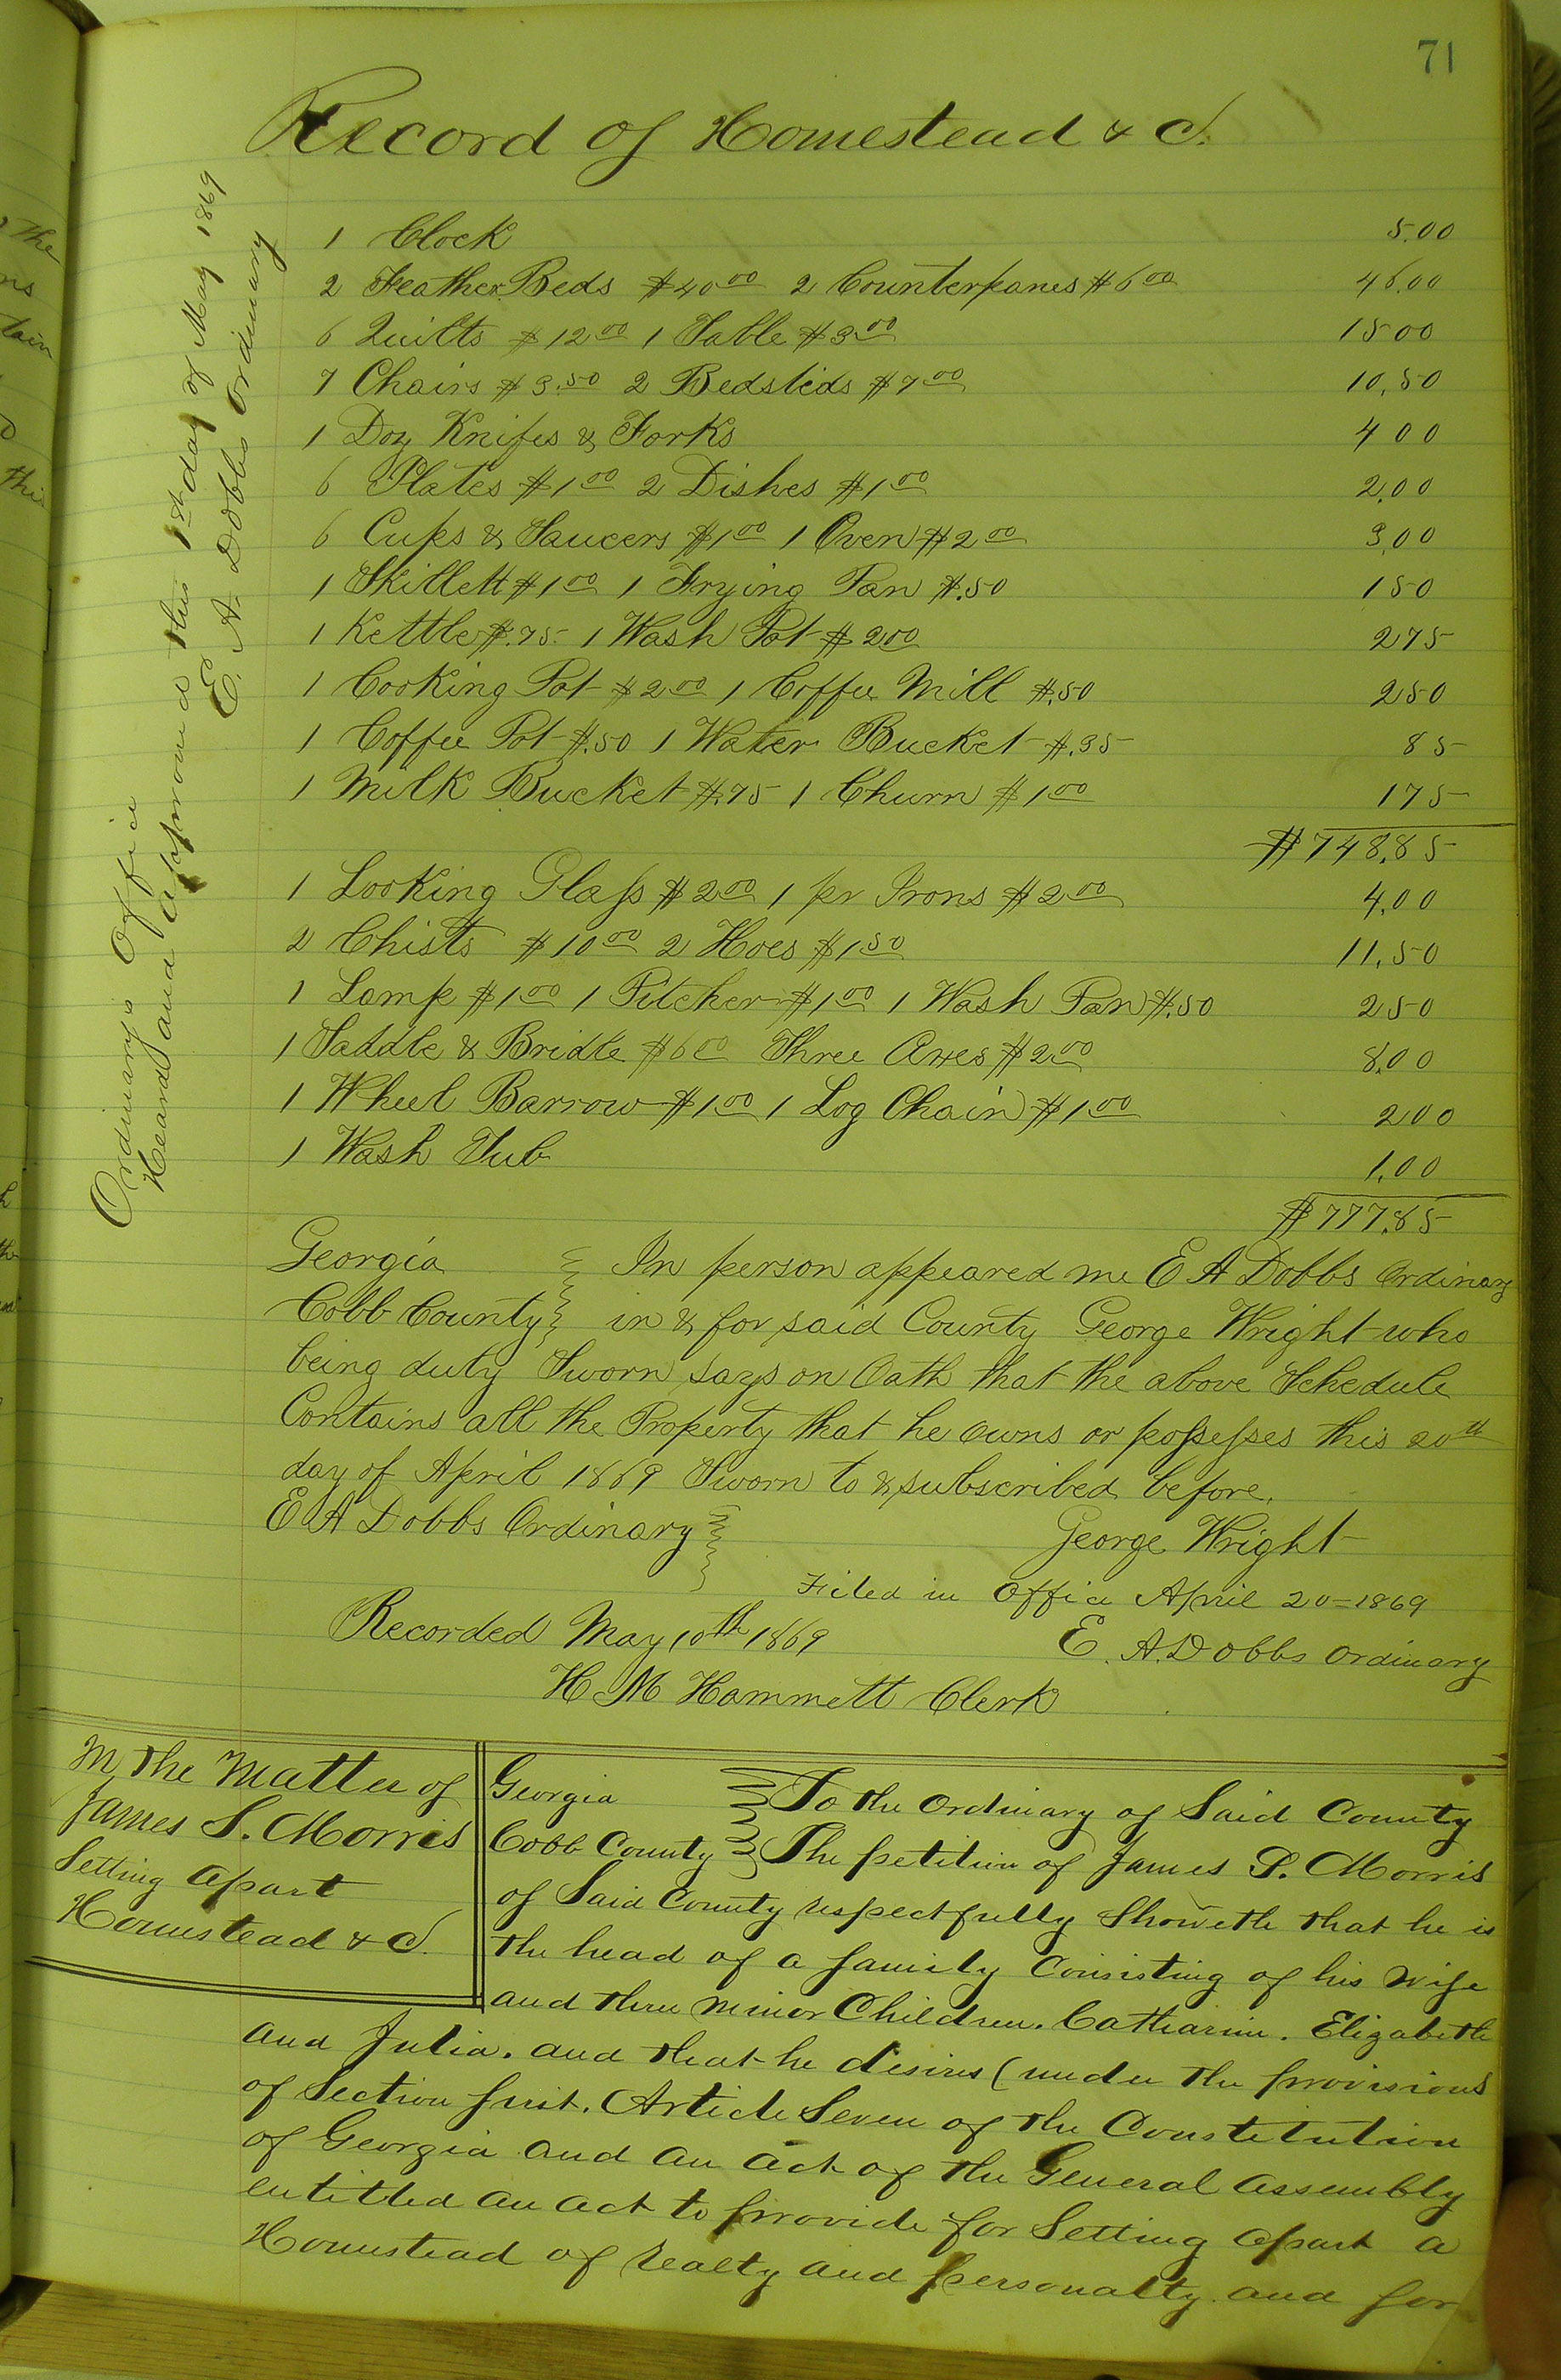 71
Record of Homestead & C.
1 Clock 5.00
2 Feather Beds $40 00 2 Counterpanes $6 00 46.00
6 Quilts $12 00 1 Table $3 00 15 00
7 Chairs $3.50 2 Bedsteds $7 00 10,50
1 Doz Knifes & Forks 4 00
6 Plates $1 00 2 Dishes $1 00 2,00
6 Cups & Saucers $1 00 1 Oven $2 00 3,00
1 Skillett $1 00 1 Frying Pan $.50 1 50
1 Kettle $.75 1 Wash Pot $2 00 2 75
1 Cooking Pot $2 00 1 Coffee Mill $.50 2 50
1 Coffee Pot $.50 1 Water Bucket $.35 85
1 Milk Bucket $.75 1 Churn $1 00 1 75
$748.85
1 Looking Glass $2 00 1 pr Irons $2 00 4,00
2 Chists $10 00 2 Hoes $1 50 11,50
1 Lamp $1 00 1 Pitcher $1 00 1 Wash Pan $.50 2 50
1 Saddle & Bridle $6 00 Three Axes $2 00 8,00
1 Wheel Barrow $1 00 1 Log Chain $1 00 2 00
1 Wash Tub 1,00
$777.85
Ordinary's Office
Heard and approved this 1st day of May 1869
E. A. Dobbs Ordinary
Georgia In person appeared me E A Dobbs Ordinary
Cobb County in & for said County George Wright who
being duty Sworn says on Oath that the above Schedule
Contains all the Property that he owns or possesses this 20th
day of April 1869 Sworn to & subscribed before.
E A Dobbs Ordinary George Wright
Filed in Office April 20=1869
Recorded May 10th 1869 E. A. Dobbs Ordinary
H M Hammett Clerk
In the Matter of
James S. Morris
Setting apart
Homestead & C.
Georgia To the Ordinary of Said County
Cobb County The petition of James S. Morris
of Said County respectfully Showeth that he is
the head of a family Consisting of his Wife
and three minor Children. Catharine. Elizabeth
and Julia. and that he desires (under the provisions
of Section first. Article Seven of the Constitution
of Georgia and an act of the General Assembly
entitled an act to provide for Setting apart a
Homestead of realty and personalty and for